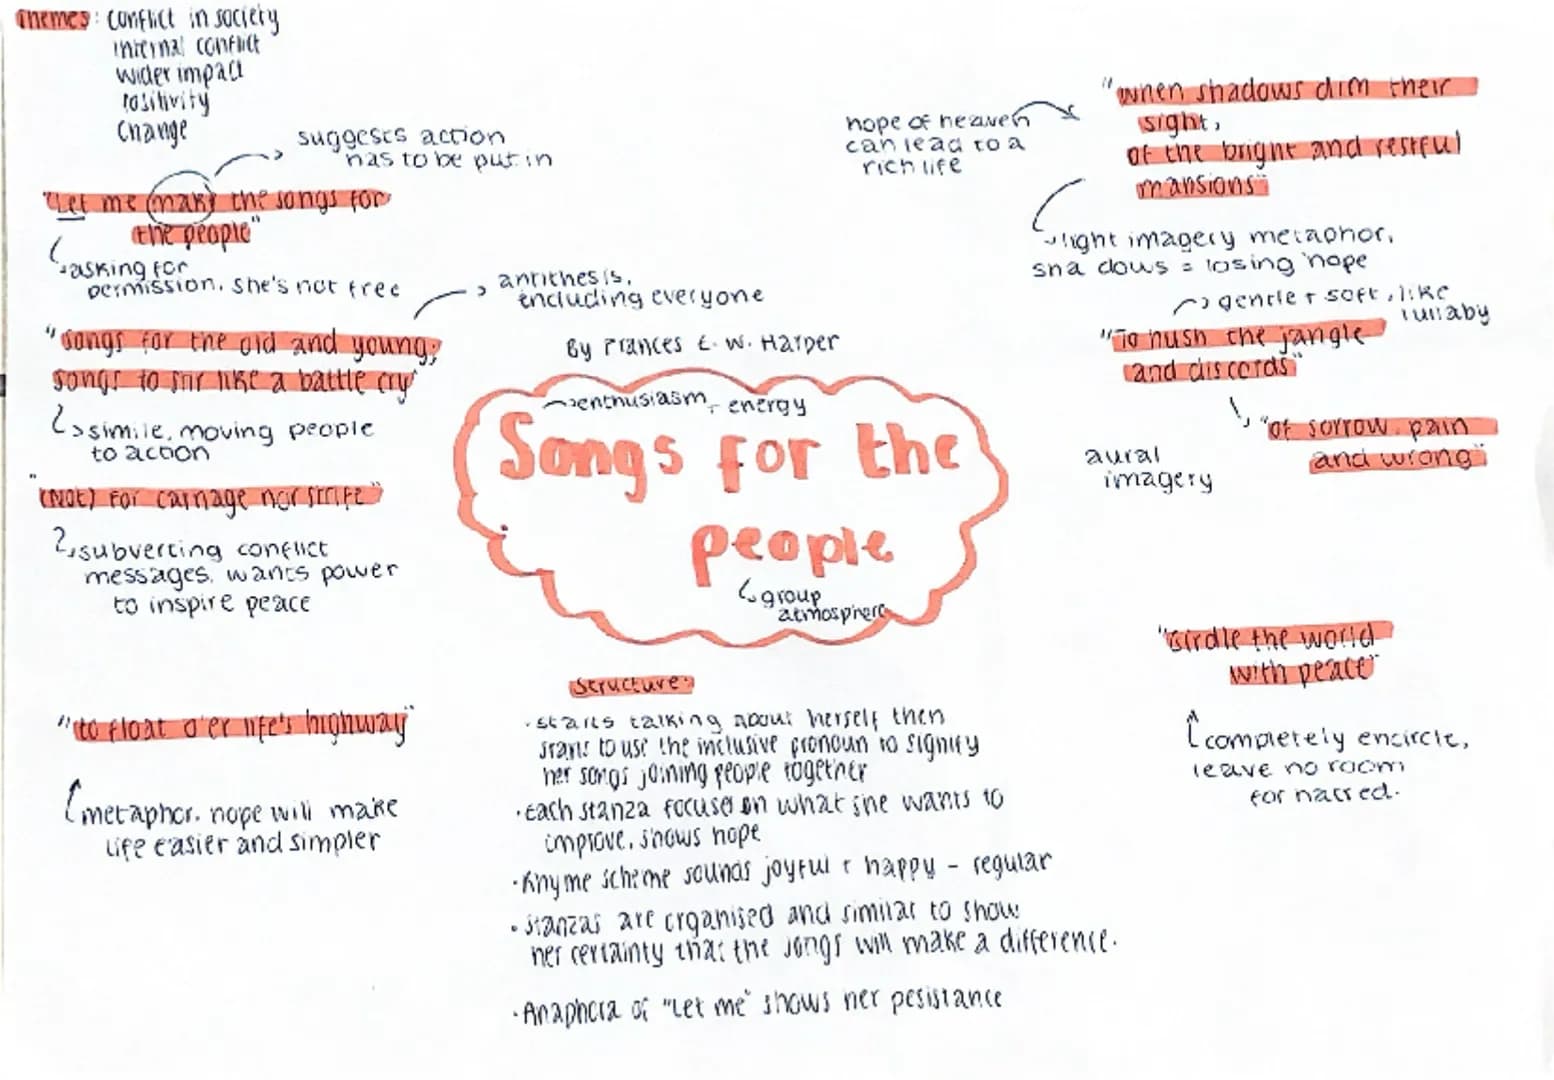 Themes: Conflict in society
internal conflict
wider impact
Positivity
Change
suggests action
has to be put in
"Let me make the songs for
the people"
asking for
permission. She's not free
antithesis,
including everyone
"Songs for the old and young;
songs to stir like a battle cry"
simile, moving people
to action
"(Not) for carnage nor strife"
subverting conflict
messages. wants power
to inspire peace
"to float o'er life's highway"
metaphor. hope will make
life easier and simpler
By Frances E. W. Harper
enthusiasm + energy
Songs for the
people
group
atmosphere
Structure:
·starts talking about herself then
starts to use the inclusive pronoun to signify
her songs joining people together
·Each stanza focuses on what she wants to
improve, shows hope
·Rhyme scheme sounds joyful + happy - regular
·Stanzas are organised and similar to show
her certainty that the songs will make a difference.
·Anaphora of "Let me" shows her pesistance
hope of heaven
can lead to a
rich life
"when shadows dim their
sight,
of the bright and restful
mansions"
light imagery metaphor,
shadows = losing hope
gentle + soft, like
lullaby
"To hush the jangle
and discords"
"of sorrow, pain
and wrong"
aural
imagery
"Girdle the world
with peace"
completely encircle,
leave no room
for hatred.